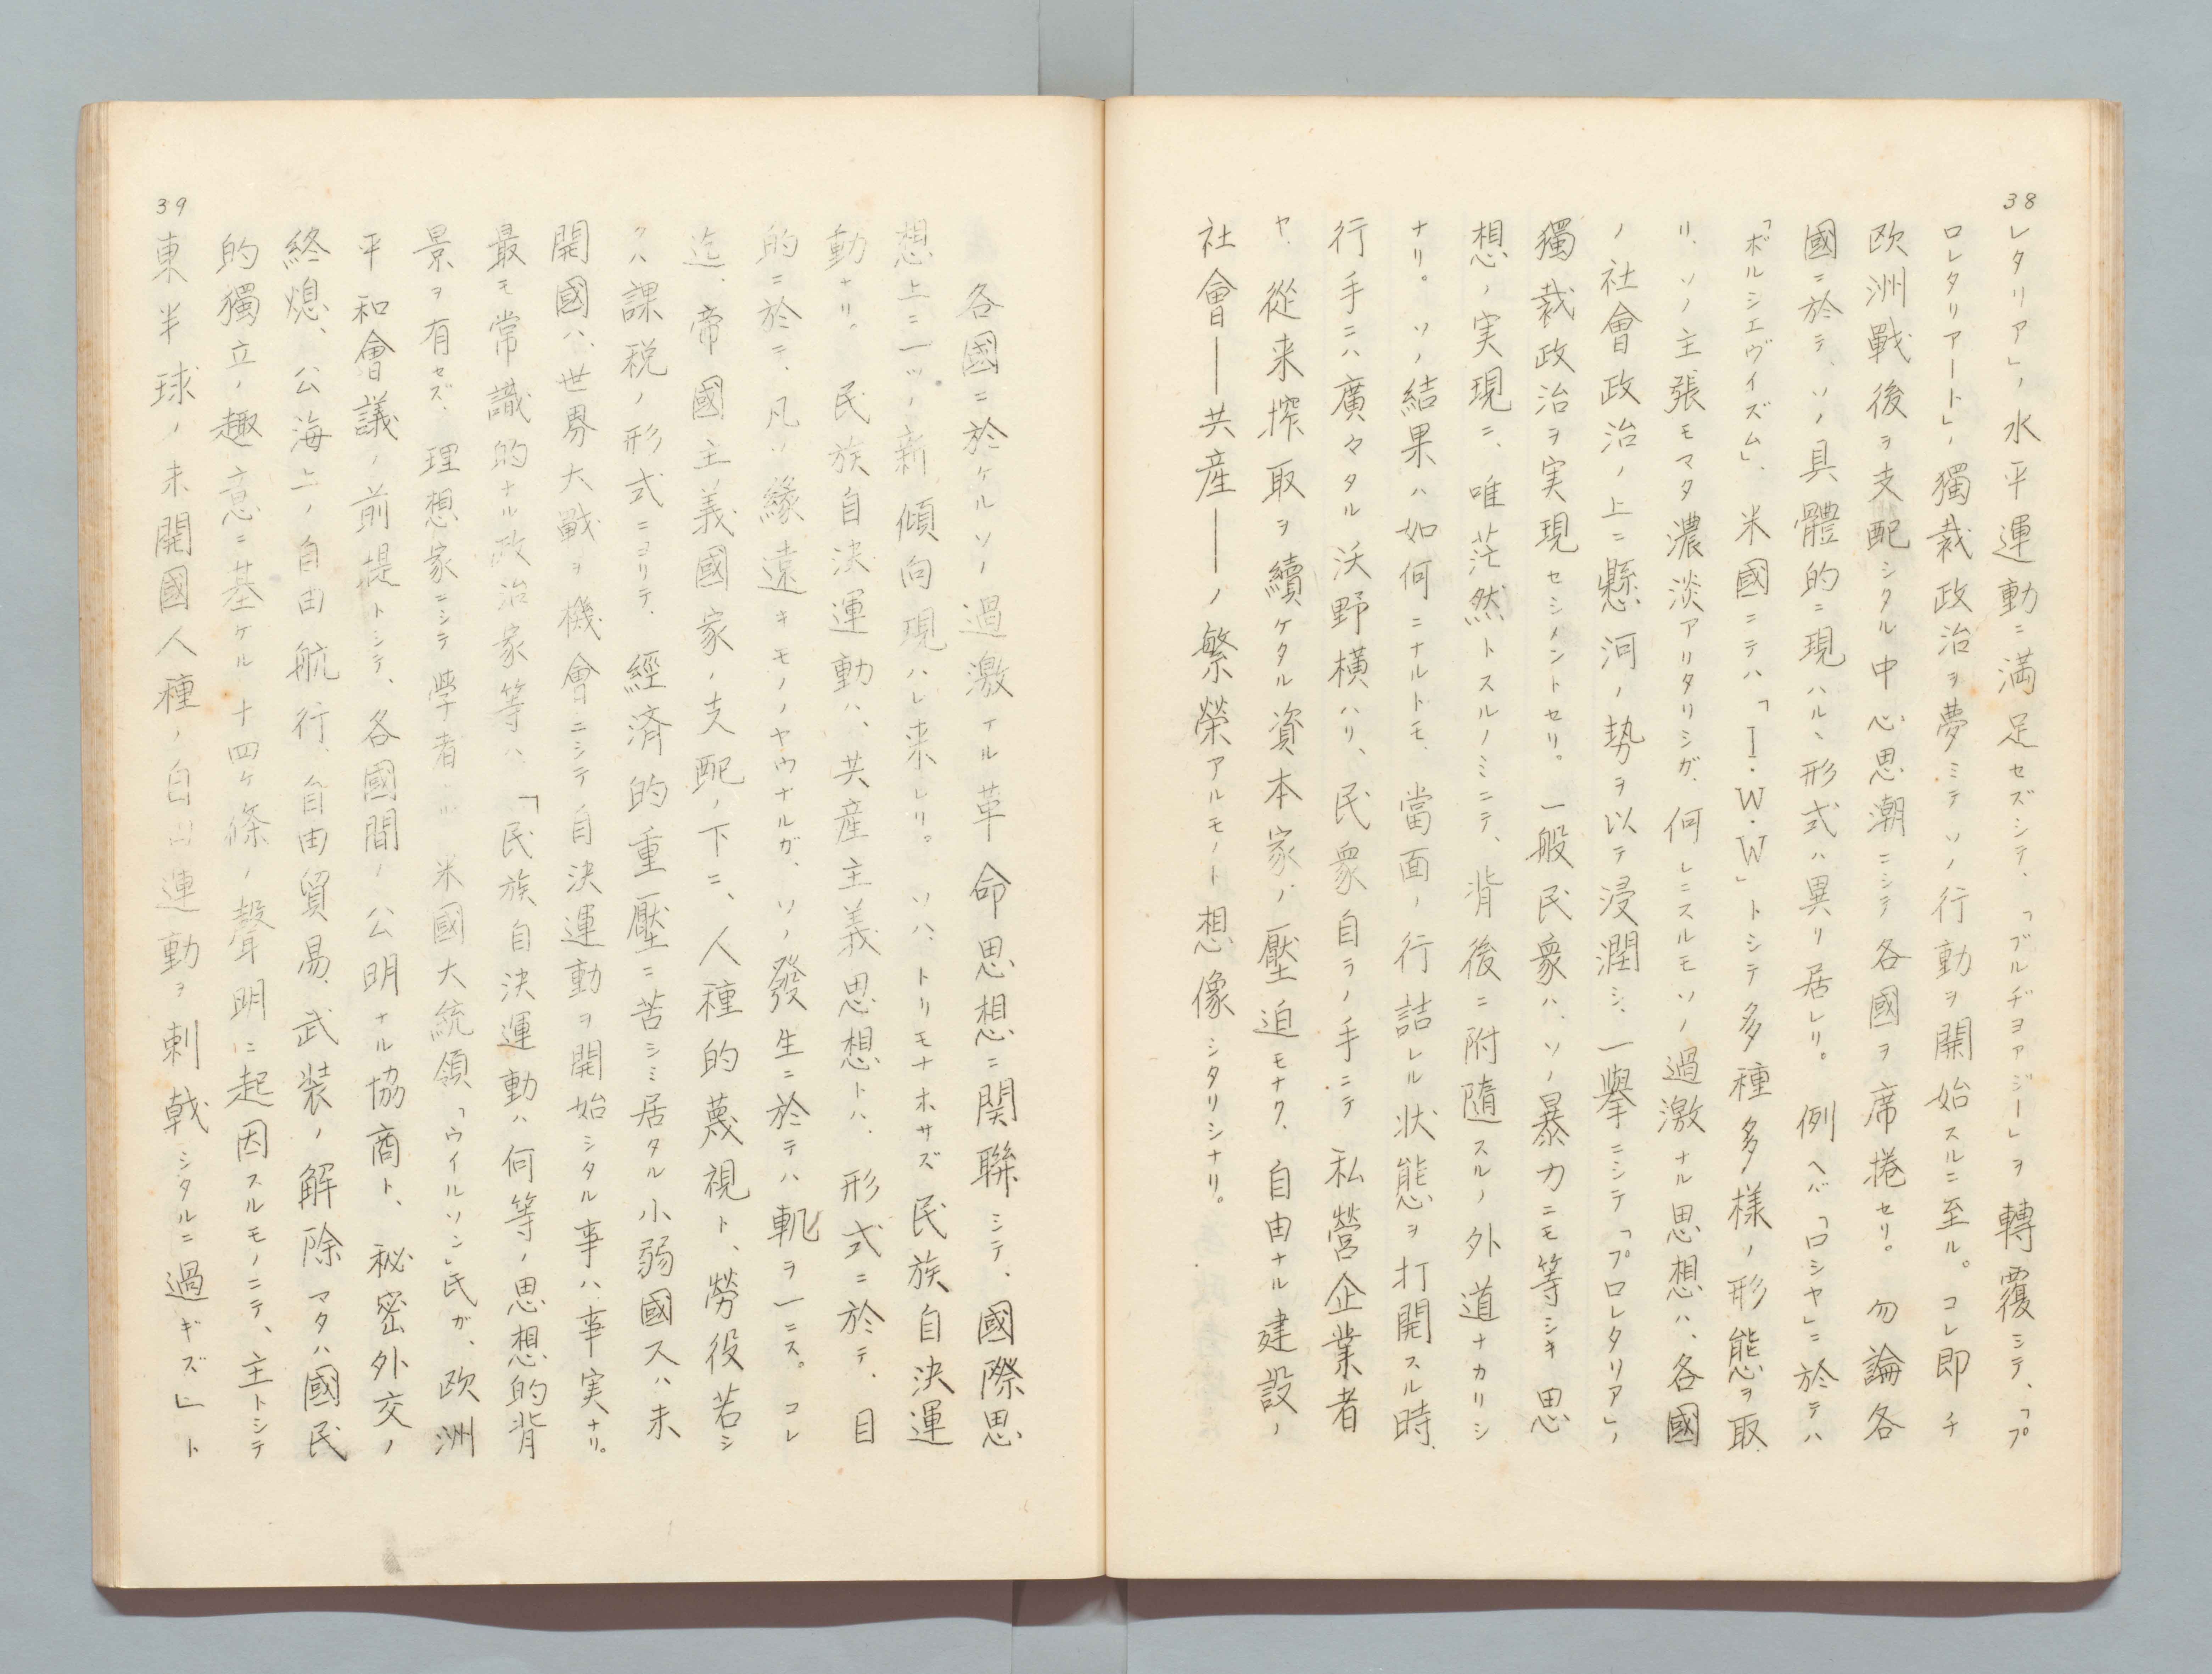 38
レタリア」ノ水平運動ニ満足セズシテ、「ブルヂヨアジー」ヲ轉覆シテ、「プ
ロレタリアート」ノ獨裁政治ヲ夢ミテソノ行動ヲ開始スルニ至ル。コレ即チ
欧洲戰後ヲ支配シタル中心思潮ニシテ各國ヲ席捲セリ。勿論各
國ニ於テ、ソノ具體的ニ現ハルヽ形式ハ異リ居レリ。例ヘバ「ロシヤ」ニ於テハ
「ボルシエヴイズム」、米國ニテハ「I・W・W」トシテ多種多様ノ形態ヲ取
リ、ソノ主張モマタ濃淡アリタリシガ、何レニスルモソノ過激ナル思想ハ、各國
ノ社會政治ノ上ニ懸河ノ势ヲ以テ浸潤シ、一擧ニシテ「プロレタリア」ノ
獨裁政治ヲ実現セシメントセリ。一般民衆ハ、ソノ暴力ニモ等シキ思
想ノ実現ニ、唯茫然トスルノミニテ、背後ニ附隨スルノ外道ナカリシ
ナリ。ソノ結果ハ如何ニナルトモ、當面ノ行詰レル状態ヲ打開スル時、
行手ニハ廣々タル沃野横ハリ、民衆自ラノ手ニテ私營企業者
ヤ、從来搾取ヲ續ケタル資本家ノ壓迫モナク、自由ナル建設ノ
社會――共産――ノ繁榮アルモノト想像シタリシナリ。
各國ニ於ケルソノ過激ナル革命思想ニ関聯シテ、國際思
想上ニ一ツノ新傾向現ハレ来レリ。ソハ、トリモナホサズ民族自決運
動ナリ。民族自決運動ハ、共産主義思想トハ、形式ニ於テ、目
的ニ於テ、凡ソ緣遠キモノノヤウナルガ、ソノ發生ニ於テハ軌ヲ一ニス。コレ
迄、帝國主義國家ノ支配ノ下ニ、人種的蔑視ト、勞役若シ
クハ課税ノ形式ニヨリテ、經済的重壓ニ苦シミ居タル小弱國又ハ未
開國ハ、世界大戰ヲ機會ニシテ自決運動ヲ開始シタル事ハ事実ナリ。
最モ常識的ナル政治家等ハ、「民族自決運動ハ何等ノ思想的背
景ヲ有セズ、理想家ニシテ學者ナル米國大統領「ウイルソン」氏ガ、欧洲
平和會議ノ前提トシテ、各國間ノ公明ナル協商ト、秘密外交ノ
終熄、公海上ノ自由航行、自由貿易、武装ノ解除マタハ國民
的獨立ノ趣意ニ基ケル十四ケ條ノ聲明ニ起因スルモノニテ、主トシテ
39
東半球ノ未開國人種ノ自由運動ヲ刺戟シタルニ過ギズ」ト